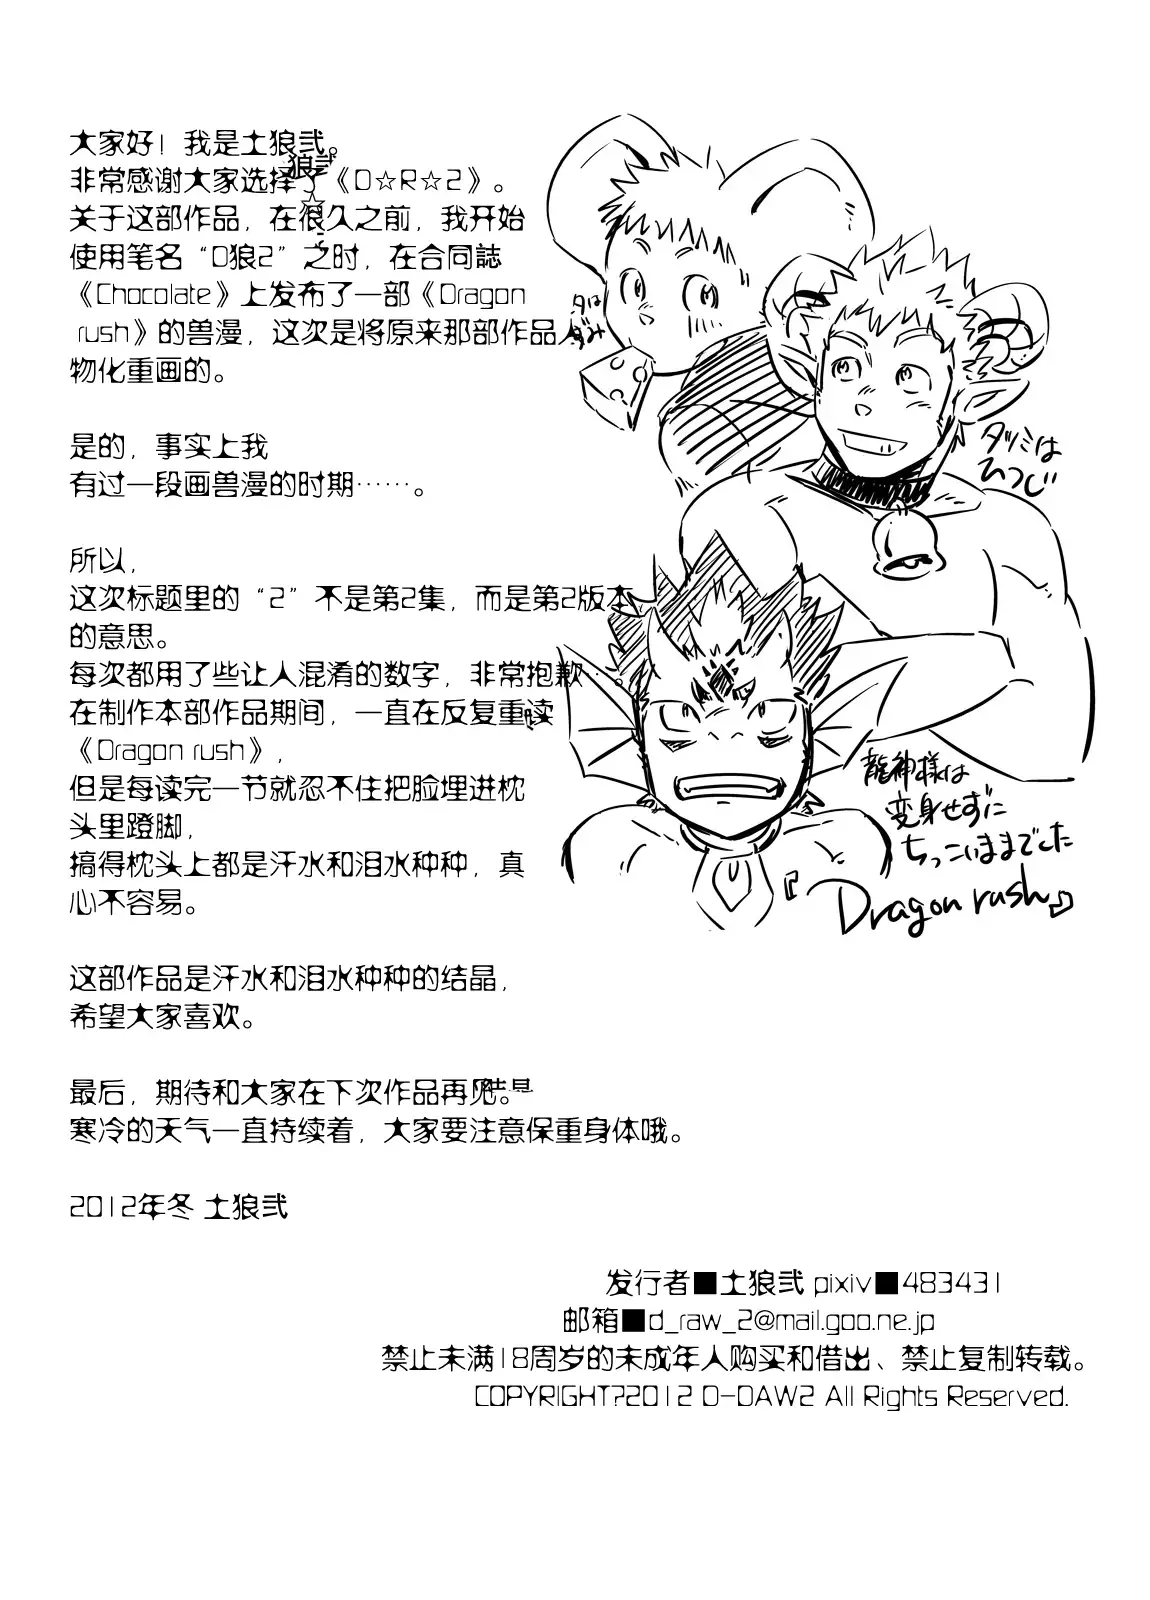 大家好！我是土狼弐。
狼弐
非常感谢大家选择了《D☆R☆2》。
☆
关于这部作品，在很久之前，我开始
使用笔名“D狼2”之时，在合同誌
《Chocolate》上发布了一部《Dragon
rush》的兽漫，这次是将原来那部作品人
物化重画的。
是的，事实上我
有过一段画兽漫的时期……。
所以，
这次标题里的“2”不是第2集，而是第2版本
的意思。
每次都用了些让人混淆的数字，非常抱歉…。
在制作本部作品期间，一直在反复重读
《Dragon rush》，
但是每读完一节就忍不住把脸埋进枕
头里蹬脚，
搞得枕头上都是汗水和泪水种种，真
心不容易。
这部作品是汗水和泪水种种的结晶，
希望大家喜欢。
最后，期待和大家在下次作品再见。
寒冷的天气一直持续着，大家要注意保重身体哦。
2012年冬 土狼弐
タツミは
ひつじ
龍神様は
変身せずに
ちっこいままでした
『Dragon rush』
发行者■土狼弐 pixiv■483431
邮箱■d_raw_2@mail.goo.ne.jp
禁止未满18周岁的未成年人购买和借出、禁止复制转载。
COPYRIGHT?2012 D-DAW2 All Rights Reserved.